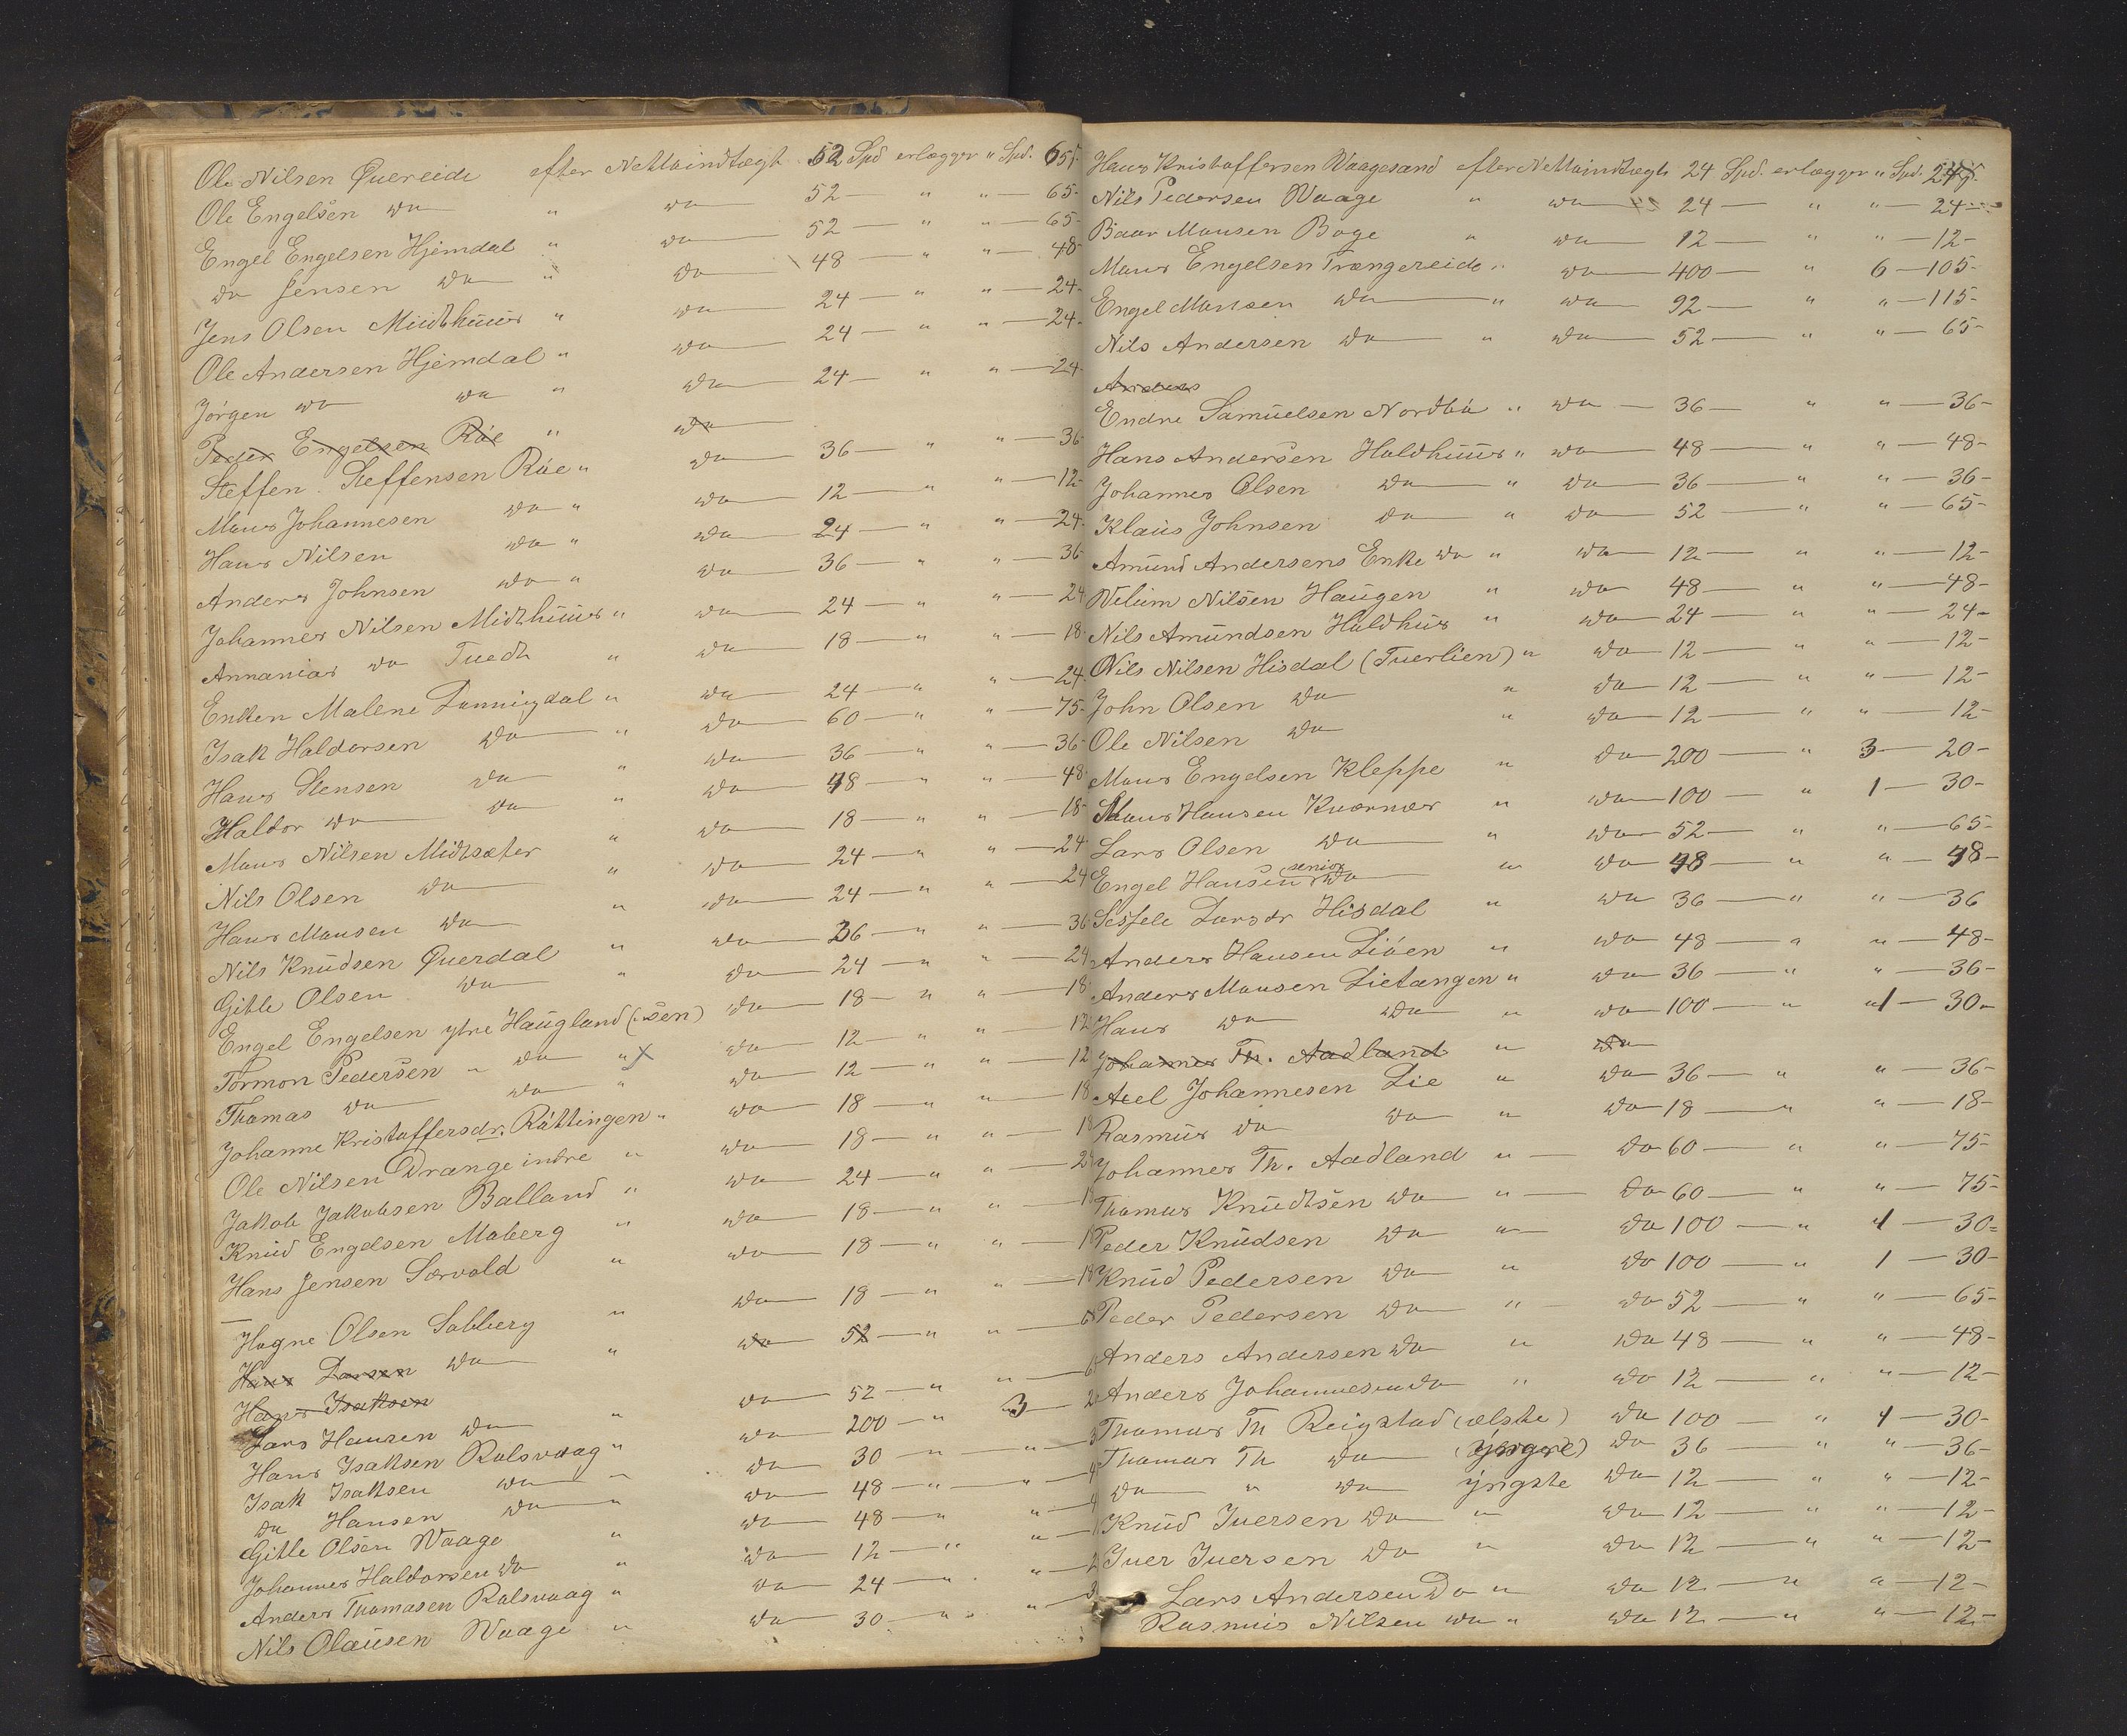 Ole Nilsen Qvereide efter Nettoindtægt 52 Spd erlægger " Spd. 65 s.
Ole Engelsen do " do 52 — " " — 65-
Engel Engelsen Hjemdal " do 52 — " " — 65-
do Jensen do " do 48 — " " — 48-
Jens Olsen Midthuus " do 24 — " " — 24-
Ole Andersen Hjemdal " do 24 — " " — 24-
Jörgen do do " do 24 — " " — 24-
Peder Engelsen Röe " do
Steffen Steffensen Röe " do 36 — " " — 36
Mons Johannesen do " do 12 — " " — 12-
Hans Nilsen do " do 24 — " " — 24-
Anders Johnsen do " do 36 — " " — 36
Johannes Nilsen Midthuus " do 24 — " " — 24
Annanias do Tuedt " do 18 — " " — 18
Enken Malene Dunnigdal " do 24 — " " — 24
Isak Haldorsen do " do 60 — " " — 75-
Hans Stensen do " do 36 — " " — 36
Haldor do do " do 48 — " " — 48
Mons Nilsen Midtsæter " do 18 — " " — 18-
Nils Olsen do " do 24 — " " — 24
Hans Monsen do " do 24 — " " — 24
Nils Knudsen Qverdal " do 36 — " " — 36
Gitle Olsen do " do 24 — " " — 24
Engel Engelsen ytre Haugland do 18 — " " — 18
Tormon Pedersen " do " x do 12 — " " — 12
Thomas do do " do 12 — " " — 12
Johanne Kristoffersdr. Röttingen " do 18 — " " — 18
Ole Nilsen Drange indre " do 18 — " " — 18
Jakob Jakobsen Balland " do 24 — " " — 2
Knud Engelsen Moberg " do 18 — " " — 1
Hans Jensen Sörvold " do 18 — " " — 1
Hogne Olsen Solberg " do 18 — " " — 18
Hans Larsen do " do 52 — " " — 6
Hans Isaksen
Lars Hansen do " do 52 — " " — 6
Hans Isaksen Rolsvaag " do 200 — " 3 — 2
Isak Isaksen do " do 30 — " " — 3
do Hansen do " do 48 — " " — 4
Gitle Olsen Vaage " do 48 — " " — 4
Johannes Haldorsen do " do 12 — " " — 1
Anders Thomasen Rolsvaag " do 24 — " " — 2
Nils Olausen Vaage " do 30 — " " — 3
Hans Kristoffersen Vaagesund efter Nettoindtægt 24 Spd. erlægger " Spd. 24 s.
Nils Pedersen Vaage " do 24 — " " — 24-
Baar Monsen Boge " do 12 — " " — 12-
Mons Engelsen Trængereide " do 400 — " 6 — 105-
Engel Monsen do " do 92 — " " — 115-
Nils Andersen do " do 52 — " " — 65-
Anders
Endre Samuelsen Nordbö " do 36 — " " — 36-
Hans Andersen Holdhuus " do 48 — " " — 48-
Johannes Olsen do " do 36 — " " — 36-
Klaus Johnsen do " do 52 — " " — 65-
Amund Andersens Enke do " do 12 — " " — 12-
Velum Nilsen Haugen " do 48 — " " — 48-
Nils Amundsen Holdhus " do 24 — " " — 24-
Nils Nilsen Hisdal (Tuerlien) " do 12 — " " — 12-
John Olsen do " do 12 — " " — 12-
Ole Nilsen do " do 12 — " " — 12-
Mons Engelsen Kleppe " do 200 — " 3 — 20-
Mons Hansen Kuærnæs " do 100 — " 1 — 30-
Lars Olsen do " do 52 — " " — 65-
Engel Hansen senior do " do 48 — " " — 48-
Sesfele Larsdr Hisdal " do 36 — " " — 36
Anders Hansen Liöen " do 48 — " " — 48-
Anders Monsen Lietangen " do 36 — " " — 36-
Hans do do " do 100 — " 1 — 30-
Johannes Th. Aadland " do
Axel Johannesen Lie " do 36 — " " — 36-
Rasmus do do " do 18 — " " — 18-
Johannes Th. Aadland " do 60 — " " — 75-
Thomas Knudtsen do " do 60 — " " — 75-
Peder Knudsen do " do 100 — " 1 — 30-
Knud Pedersen do " do 100 — " 1 — 30-
Peder Pedersen do " do 52 — " " — 65-
Anders Andersen do " do 48 — " " — 48-
Anders Johannesen do " do 12 — " " — 12-
Thomas Th Reigstad (ælste) do 100 — " 1 — 30-
Thomas Th do (yngre) do 36 — " " — 36-
do " do yngste do 12 — " " — 12-
Knud Iversen do " do 12 — " " — 12-
Iver Iversen do " do 12 — " " — 12-
Lars Andersen do " do 12 — " " — 12-
Rasmus Nilsen do " do 12 — " " — 12-